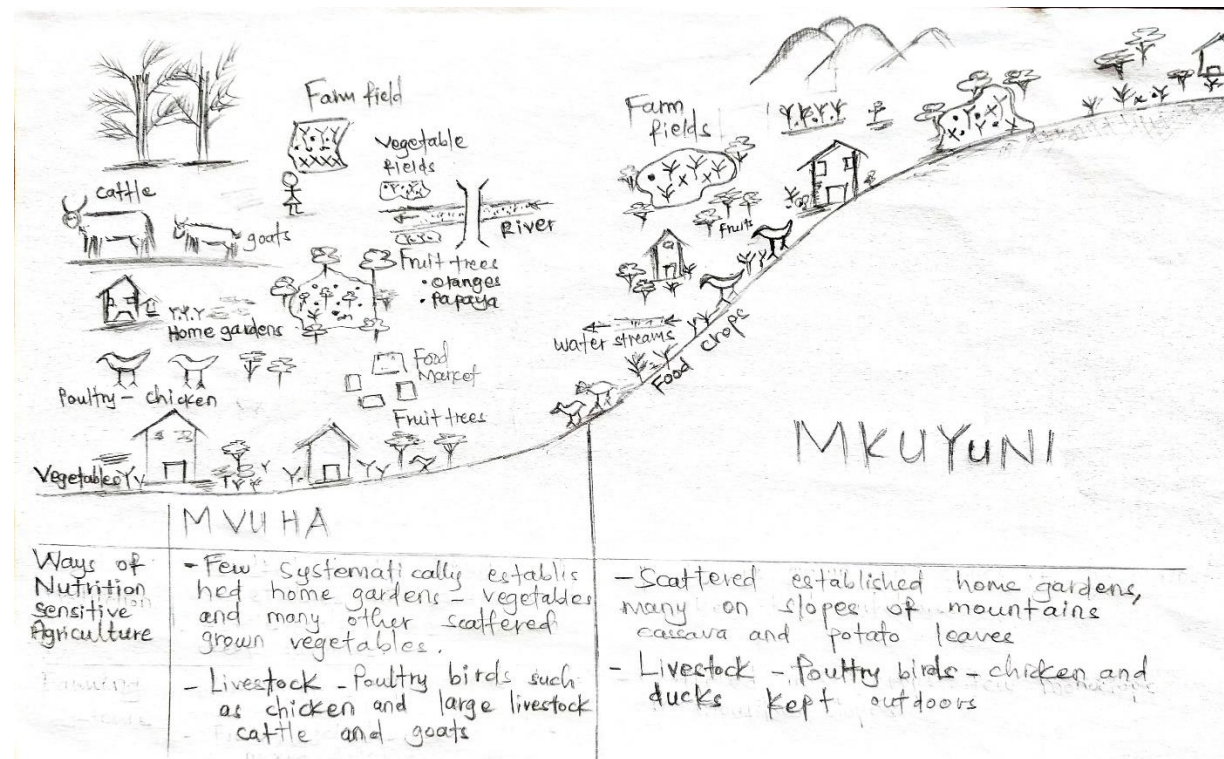 Farm field
Vegetable
fields
cattle
goats
River
Fruit trees
• Oranges
• Papaya
Home gardens
Food
Market
Poultry - chicken
Fruit trees
Vegetables
Farm
fields
fruits
Water streams
Food crops
MKUYUNI
MVUHA
Ways of
Nutrition
sensitive
Agriculture
- Few systematically establis
hed home gardens - vegetables
and many other scattered
grown vegetables.
- Livestock - Poultry birds such
as chicken and large livestock
cattle and goats
- Scattered established home gardens,
many on slopes of mountains
cassava and potato leaves
- Livestock - Poultry birds - chicken and
ducks kept outdoors